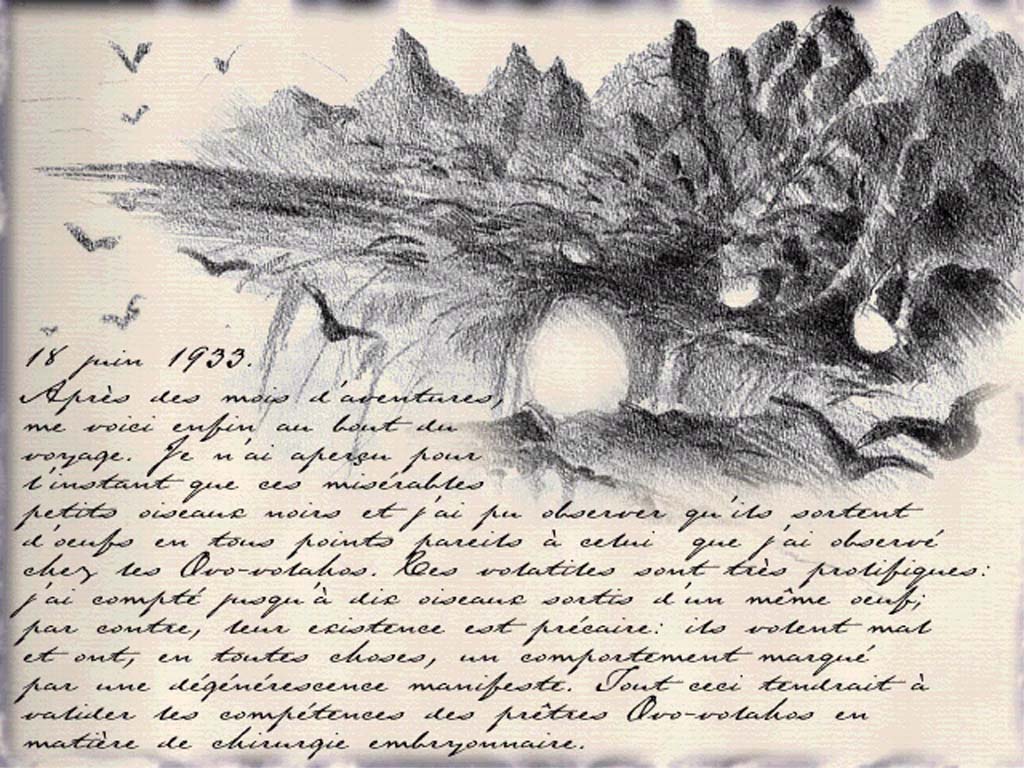 18 juin 1933.
Après des mois d'aventures,
me voici enfin au bout du
voyage. Je n'ai aperçu pour
l'instant que ces misérables
petits oiseaux noirs et j'ai pu observer qu'ils sortent
d'oeufs en tous points pareils à celui que j'ai observé
chez les Ovo-volahos. Ces volatiles sont très prolifiques:
j'ai compté jusqu'à dix oiseaux sortis d'un même oeuf;
par contre, leur existence est précaire: ils volent mal
et ont, en toutes choses, un comportement marqué
par une dégénérescence manifeste. Tout ceci tendrait à
valider les compétences des prêtres Ovo-volahos en
matière de chirurgie embryonnaire.